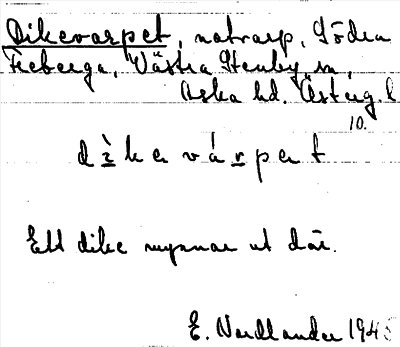 Dikevarpet, notvarp, Södra
Freberga, Västra Stenby sn,
Aska hd. Österg. l
10.
dìkevárpet
Ett dike mynnar ut där.
E. Nordlander 1945